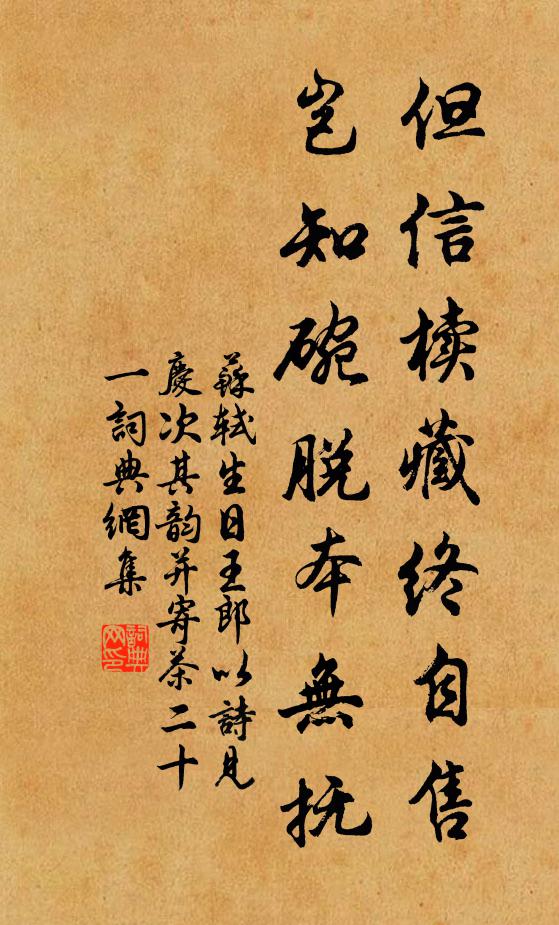 但信椟藏終自售
岂知碗脱本無抚
蘇軾生日王郎以詩見
慶次其韵并寄茶二十
一詞典網集
詞典网印